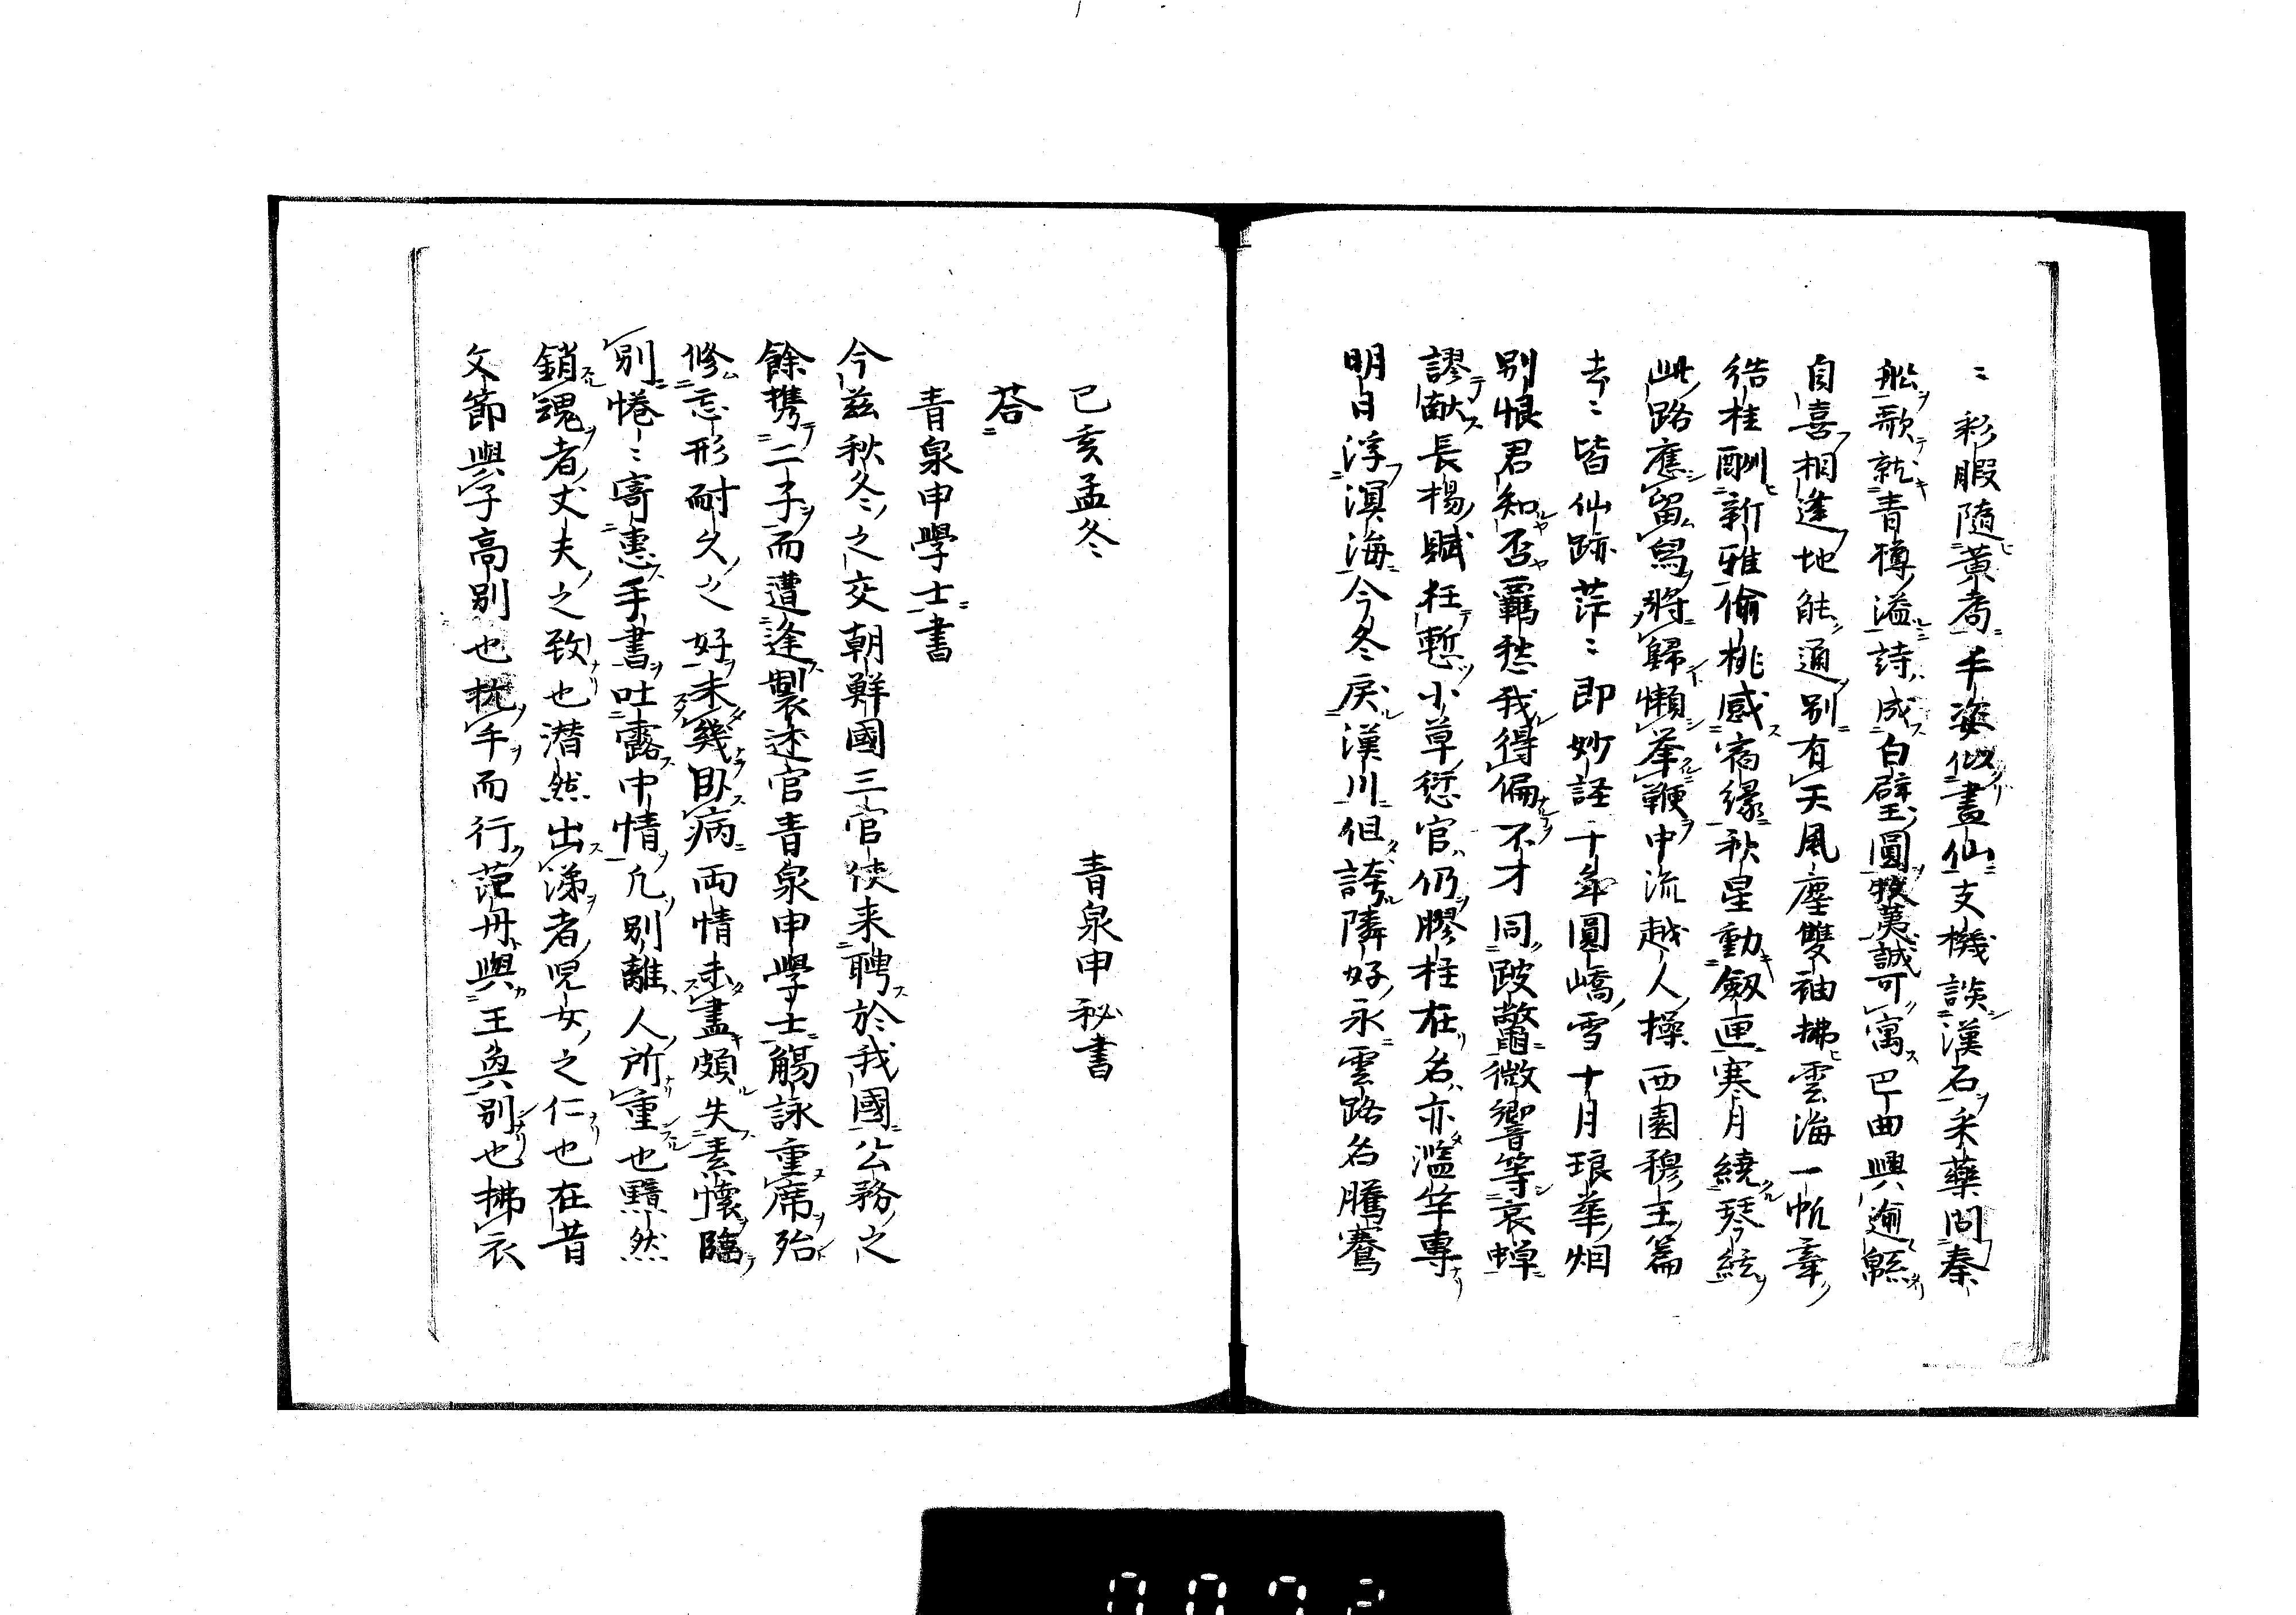 〻彩暇隨黃考手姿似畫仙支機談漢石采藥問秦
舩歌就青樽溢詩成白璧圓撫萬誠可寓巴曲興逾緜
自喜相逢地能通別有天風塵雙袖拂雲海一帆牽
徭桂酬新雅偷桃感宿緣秋星動劔匣寒月繞琴絃
此路應留舄將歸懶擧鞭中流越人操西園穆王篇
去〻皆仙跡茫〻即妙詮千年圓嶠雪十月琅華烟
別恨君知否羈愁我得偏不才同跛鼈微響等哀蟬
謬献長楊賦枉慙小草愆官仍膠柱在名亦濫竽專
明日浮溟海今冬戻漢川但誇隣好永雲路名騰騫
己亥孟冬　青泉申秘書
荅
青泉申學士書
今茲秋冬之交朝鮮國三官使来聘於我國公務之
餘携二子而遭逢製述官青泉申學士觴詠重席殆
修忘形耐久之好未幾臥病両情未盡頗失素懷臨
別惓〻寄惠手書吐露中情凢別離人所重也黯然
銷魂者丈夫之致也潜然出涕者児女之仁也在昔
文節與子高別也抗手而行范丹與王奐別也拂衣